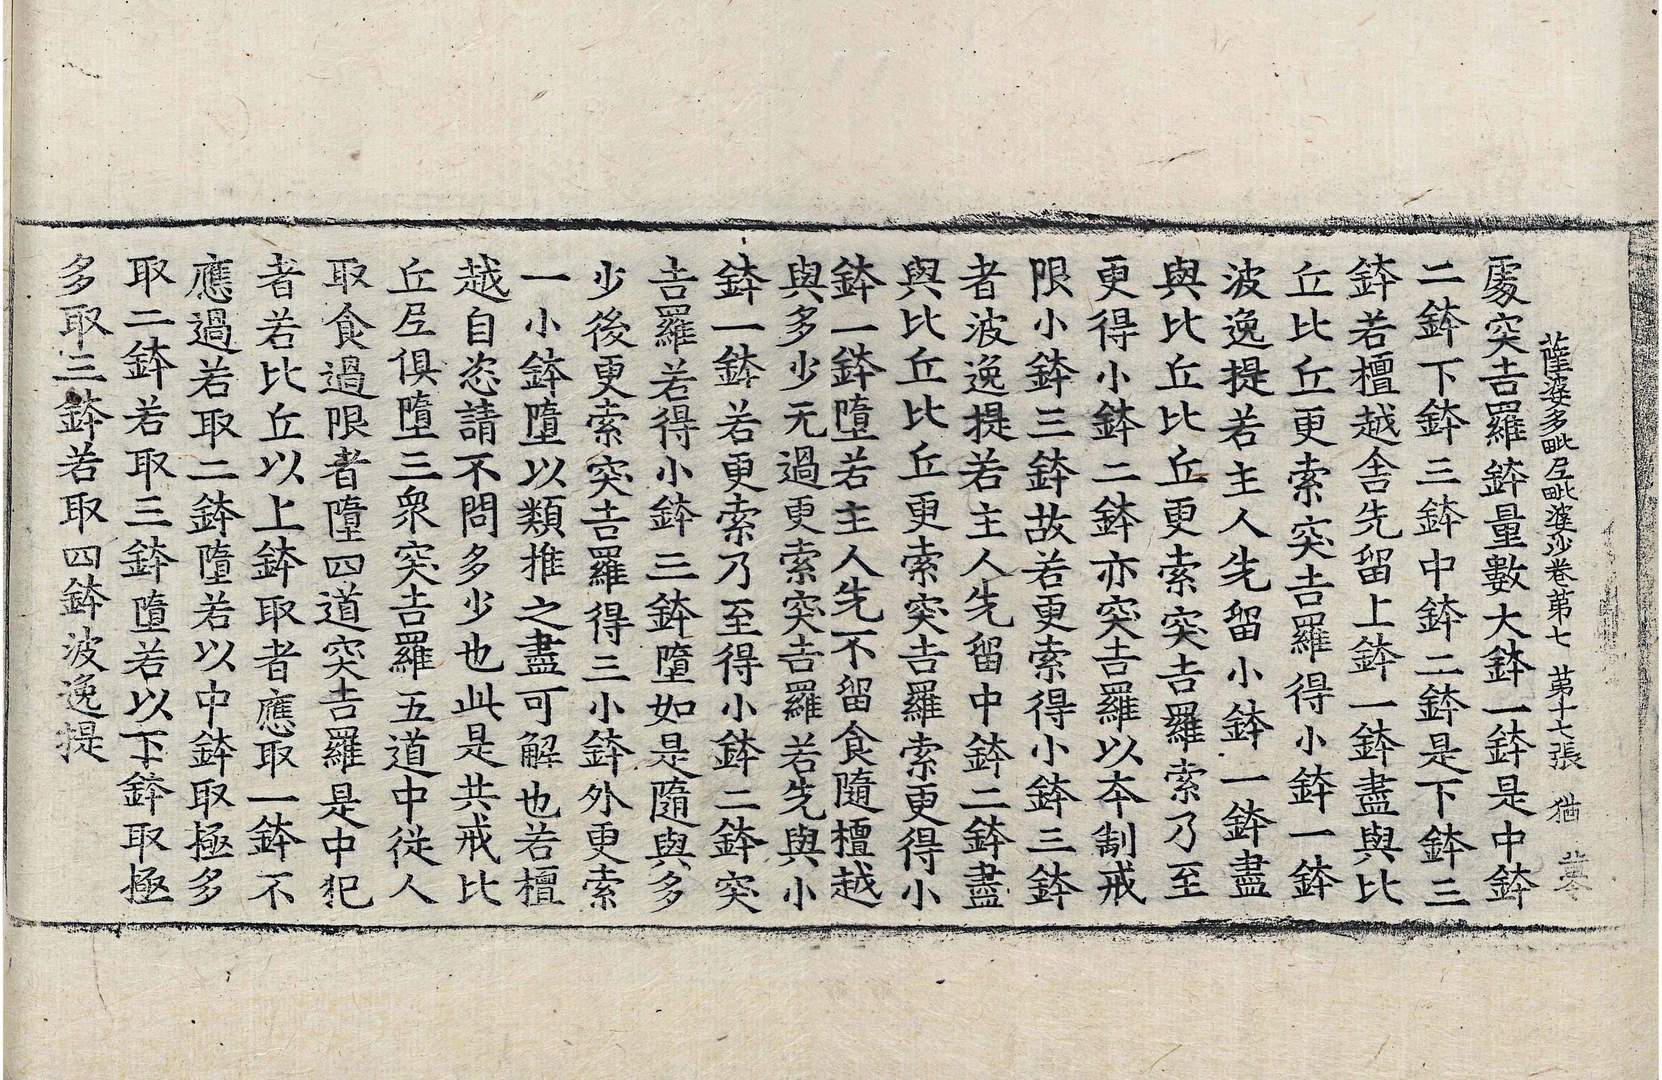 薩婆多毗尼毗婆沙卷苐七　苐十七張　猶
處突吉羅鉢量數大鉢一鉢是中鉢
二鉢下鉢三鉢中鉢二鉢是下鉢三
鉢若檀越舍先留上鉢一鉢盡與比
丘比丘更索突吉羅得小鉢一鉢
波逸提若主人先留小鉢一鉢盡
與比丘比丘更索突吉羅索乃至
更得小鉢二鉢亦突吉羅以本制戒
限小鉢三鉢故若更索得小鉢三鉢
者波逸提若主人先留中鉢二鉢盡
與比丘比丘更索突吉羅索更得小
鉢一鉢墮若主人先不留食隨檀越
與多少无過更索突吉羅若先與小
鉢一鉢若更索乃至得小鉢二鉢突
吉羅若得小鉢三鉢墮如是隨與多
少後更索突吉羅得三小鉢外更索
一小鉢墮以類推之盡可解也若檀
越自恣請不問多少也此是共戒比
丘尼俱墮三衆突吉羅五道中從人
取食過限者墮四道突吉羅是中犯
者若比丘以上鉢取者應取一鉢不
應過若取二鉢墮若以中鉢取極多
取二鉢若取三鉢墮若以下鉢取極
多取三鉢若取四鉢波逸提